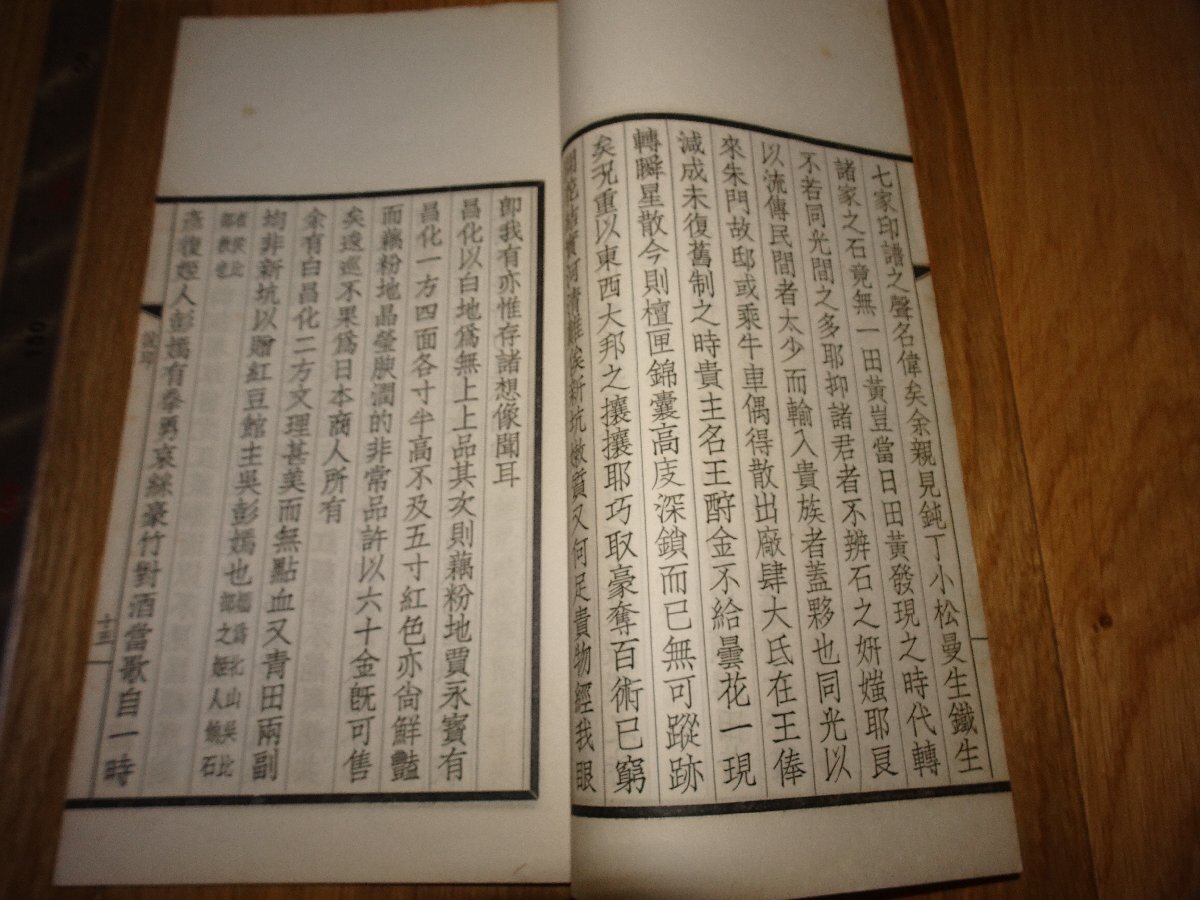 七家印譜之聲名偉矣余親見鈍丁小松曼生鐵生
諸家之石竟無一田黃豈當日田黃發現之時代轉
不若同光間之多耶抑諸君者不辨石之妍媸耶良
以流傳民間者太少而輸入貴族者蓋夥也同光以
來朱門故邸或乘牛車偶得散出廠肆大氐在王俸
減成未復舊制之時貴主名王酧金不給曇花一現
轉瞬星散今則檀匣錦囊高庋深鎖而已無可蹤跡
矣況重以東西大邦之攘攘耶巧取豪奪百術已窮
新坑嫩質又何足貴物經我眼
卽我有亦惟存諸想像聞耳
昌化以白地爲無上上品其次則藕粉地賈永寶有
昌化一方四面各寸半高不及五寸紅色亦尙鮮豔
而藕粉地晶瑩腴潤的非常品許以六十金旣可售
矣逡巡不果爲日本商人所有
余有白昌化二方文理甚美而無點血又青田兩副
均非新坑以贈紅豆館主吳彭嫣也
人彭嫣有拳勇哀絲豪竹對酒當歌自一時